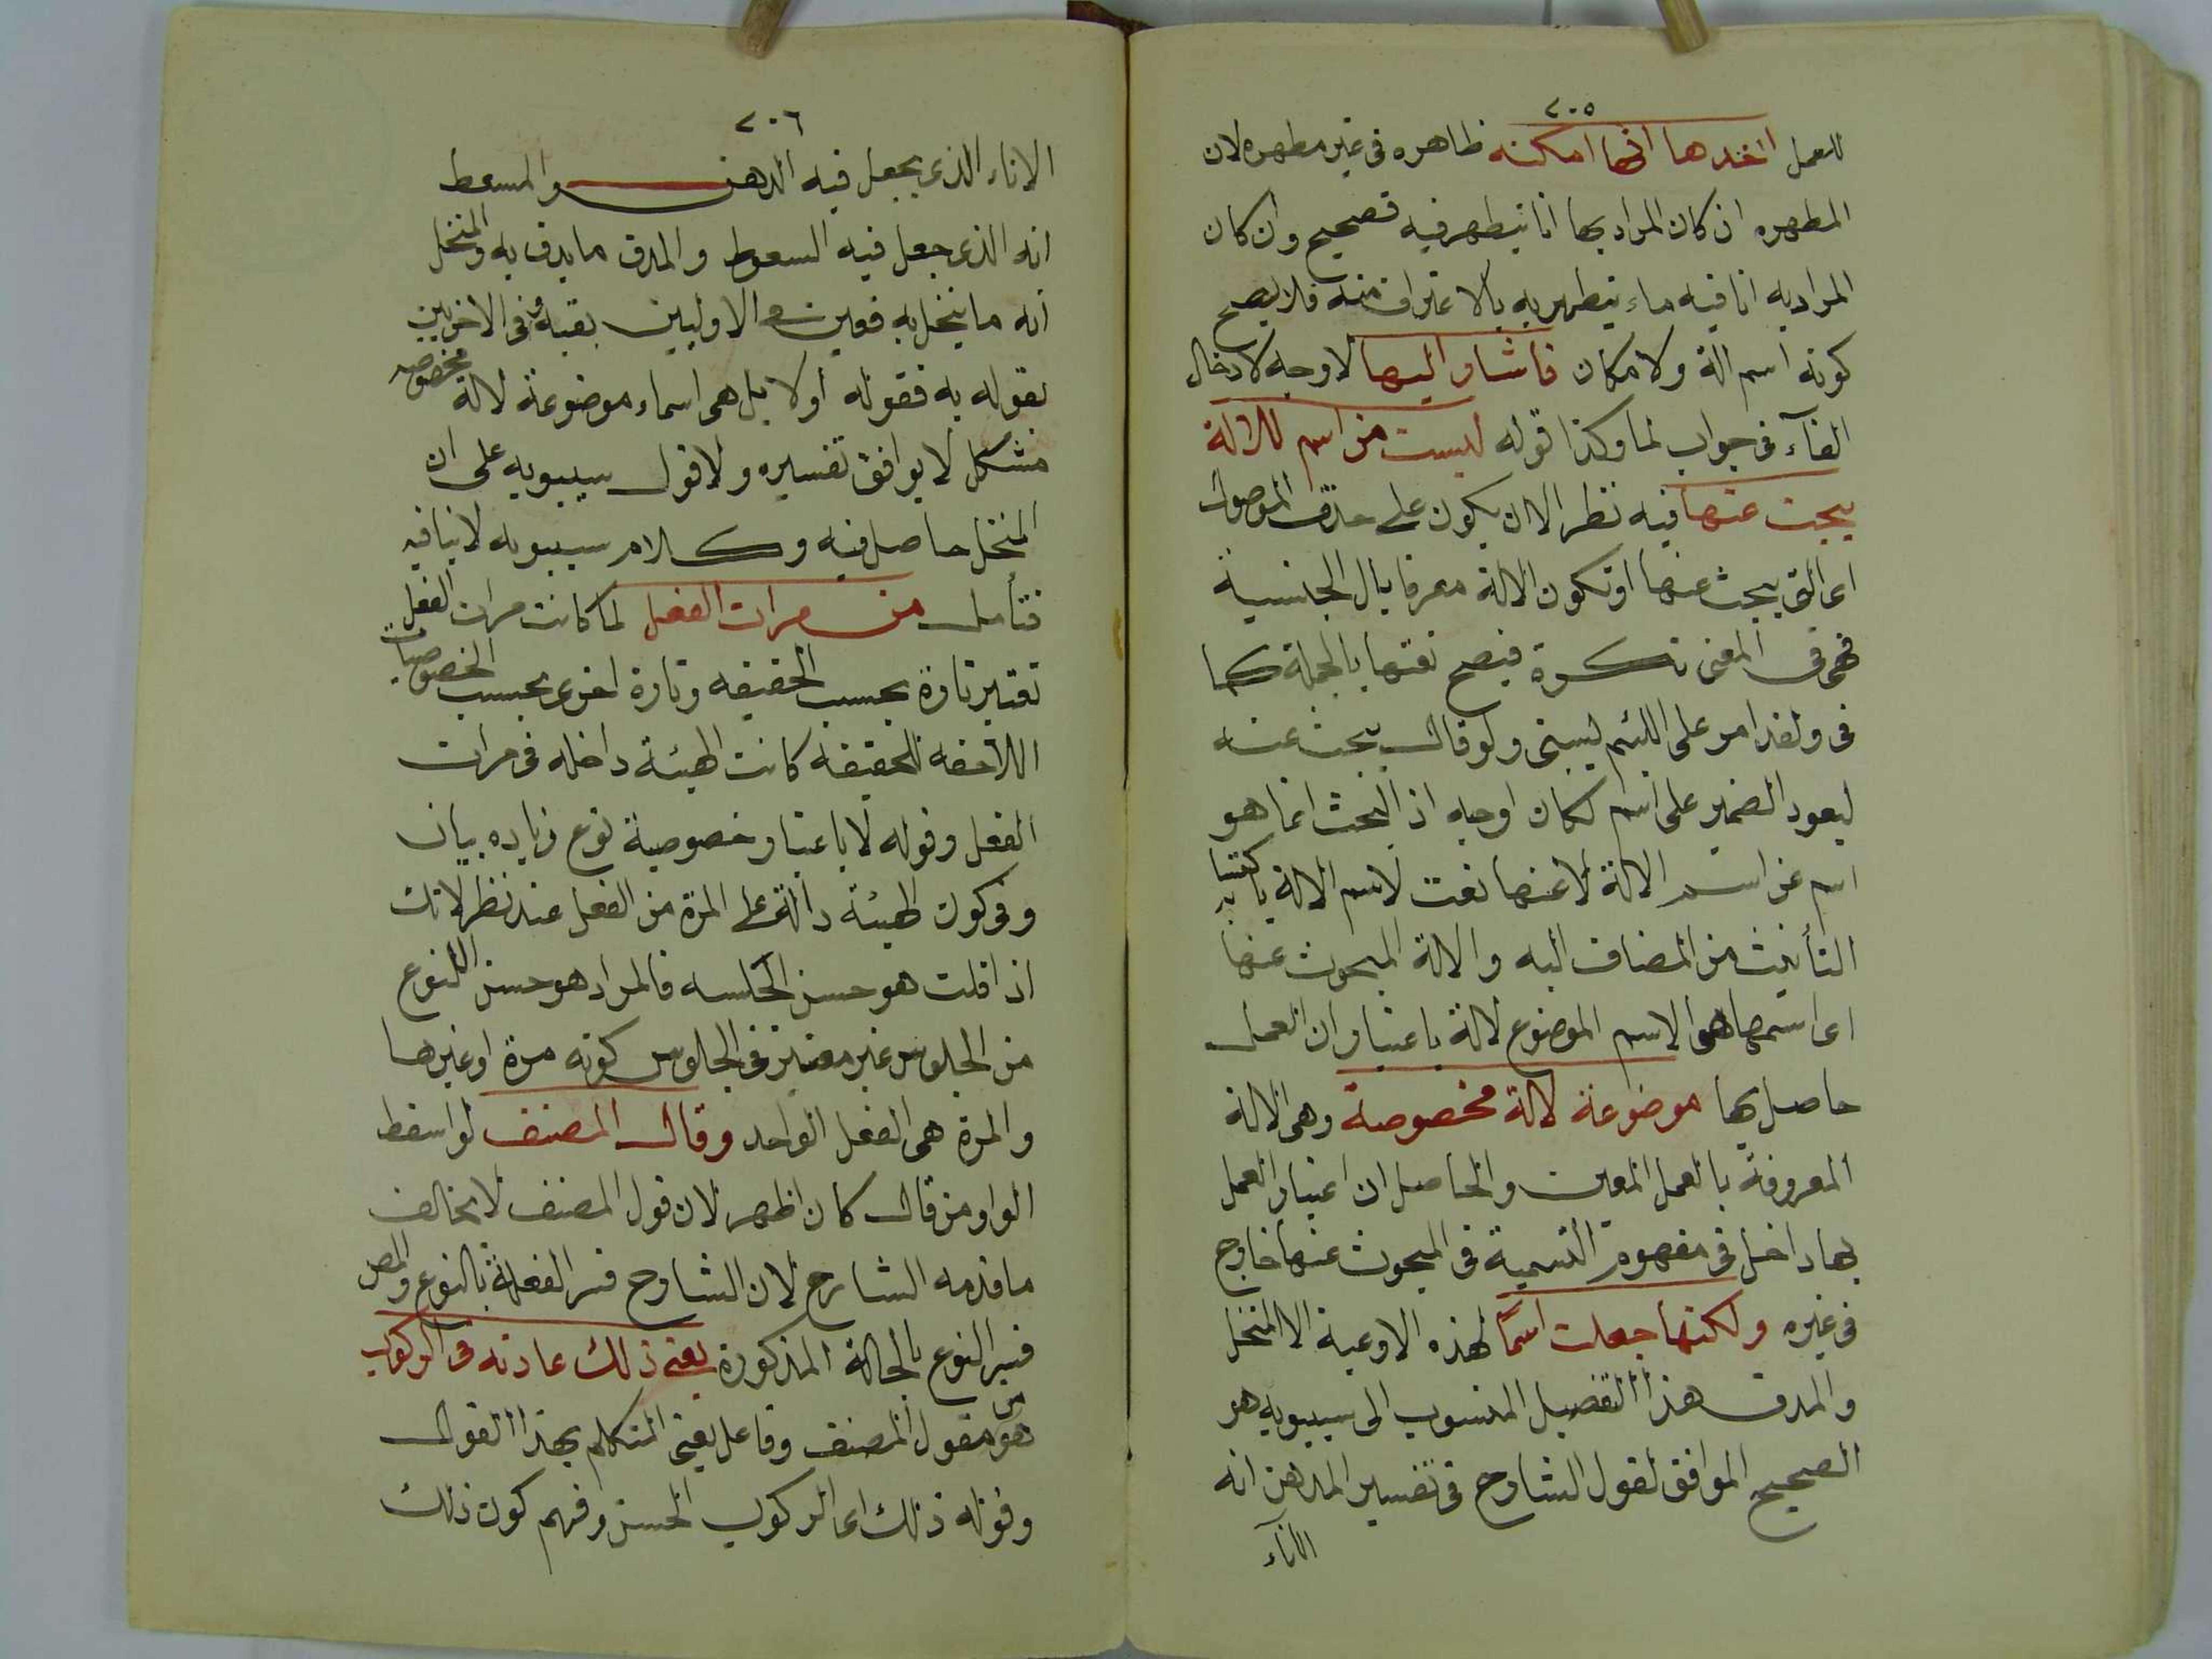 ٢٠٥
للعمل اخذها انها امكنه ظاهره فى غير مطهره لان
المطهره ان كان المراد بها انا يتطهر فيه فصحيح وان كان
المراد به انا فيه ماء يتطهر به بالاغتراف منه فلا يصح
كونه اسم الة ولا مكان فاشار اليها لا وجه لادخال
الفآء فى جواب لما وكذا قوله ليست من اسم للالة
يبحث عنها فيه نظر الا ان يكون على حذف الموصول
اى التى يبحث عنها او تكون الالة معرفا بال الجنسية
فهى فى المعنى نكرة فيصح نعتها بالجملة كما
فى ولقد امر على اللئيم يسبنى ولو قال يبحث عنه
ليعود الضمير على اسم لكان اوجه اذ البحث انما هو
اسم عن اسم الالة لا عنها نعت لاسم الالة باكتسابه
التأنيث من المضاف اليه والالة المبحوث عنها
اى اسمها هو الاسم الموضوع لالة باعتبار ان العمل
حاصل بها موضوعة لالة مخصوصة وهى الالة
المعروفة بالعمل المعين والحاصل ان اعتبار العمل
بها داخل فى مفهوم التسمية فى المبحوث عنها خارج
فى غيره ولكنها جعلت اسمًا لهذه الاوعية الا المنخل
والمدق هذا التفصيل المنسوب الى سيبويه هو
الصحيح الموافق لقول الشارح فى تفسير المدهن انه
الانآء
٢٠٦
الاناء الذى يجعل فيه الدهن والمسعط
انه الذى جعل فيه السعوط والمدق ما يدق به والمنخل
انه ما ينخل به فوين الاوليين بقيه فى الاخريين
بقوله به فقوله اولا بل هى اسماء موضوعة لالة مخصوصه
مشكل لا يوافق تفسيره ولا قول سيبويه على ان
المنخل حاصل فيه وكلام سيبويه لا ينافيه
فتأمل من مرات الفعل لما كانت مرات الفعل
تعتبر تارة بحسب الحقيقه وتارة اخرى بحسب الخصوصيات
اللاحقه للحقيقه كانت الهيئة داخله فى مرات
الفعل وقوله لا باعتبار خصوصية نوع زياده بيان
وفى كون الهيئة دالة على المرة من الفعل عند نظر لانك
اذا قلت هو حسن الجلسه فالمراد هو حسن النوع
من الجلوس غير معتبر فى الجلوس كونه مرة او غيرها
والمرة هى الفعل الواحد وقال المصنف لو اسقط
الواو من قال كان اظهر لان قول المصنف لا يخالف
ما قدمه الشارح لان الشارح فسر الفعلة بالنوع والمص
فسر النوع بالحالة المذكورة يعنى ذلك عادته فى الركوب
هو من مقول المصنف وفاعل يعنى المتكلم بهذا القول
وقوله ذلك اى الركوب الحسن وفهم كون ذلك